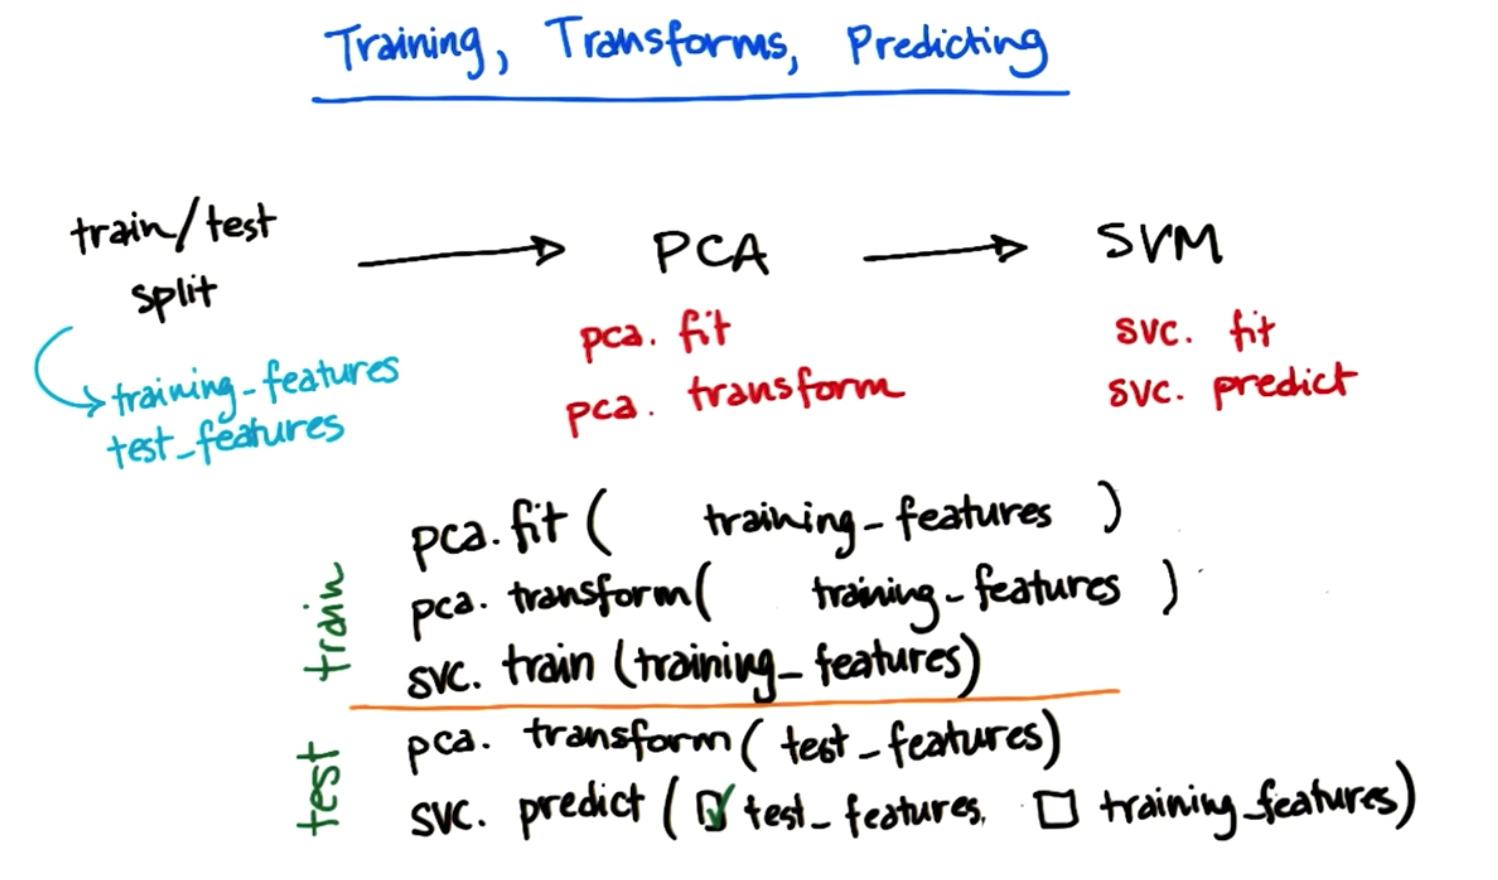 Training, Transforms, Predicting
train/test split
PCA
SVM
training_features
test_features
pca. fit
pca. transform
svc. fit
svc. predict
train
pca.fit ( training_features )
pca. transform( training_features )
svc. train (training_features)
test
pca. transform( test_features)
svc. predict ( test_features, training_features)